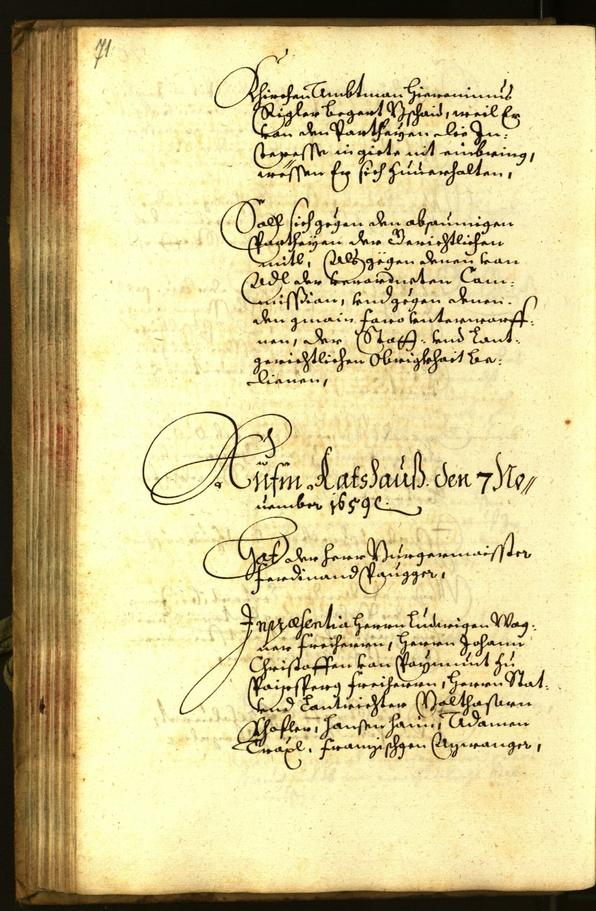 71
Khirchen Ambtman Hieronimus
Rigler begert Bschaid, weil Er
von den Partheyen die In-
teresse in giete nit einbring,
wessen Er sich zuuerhalten,
Soll sich gegen den absaumigen
Partheyen der Gerichtlichen
mitl, Als gegen denen von
Adl der verordneten Com-
mission, vnd gegen denen
den gmain foro vnterworff-
nen, der Statt- vnd Lant-
gerichtlichen Obrigkhait be-
dienen,
Aufm Ratshauß den 7 No-
uember 1659
Hat der Herr Burgermaisster
Ferdinand Paugger,
In præsentia Herrn Ludwigen Wag-
ner Freiherrn, Herrn Johann
Christoffen von
Freiherrn, Herrn Stat-
vnd Lantrichter Balthasarn
Hansen Adamen
Tröxl, Franzischgen